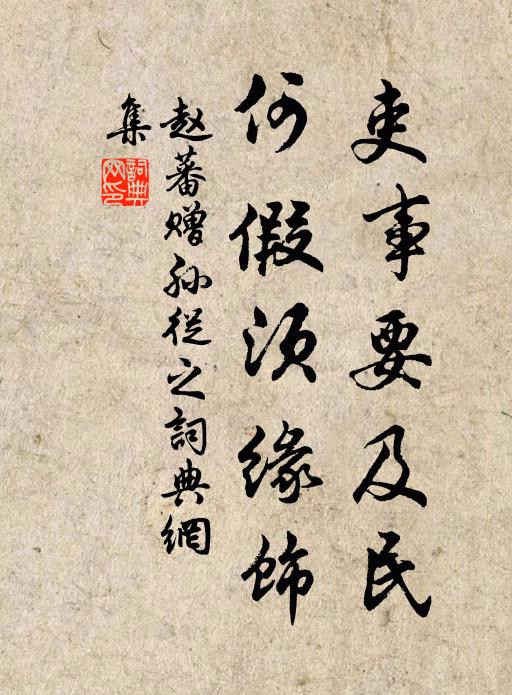 吏事要及民
何假须缘饰
赵蕃赠孙從之詞典網
集
詞典
网印